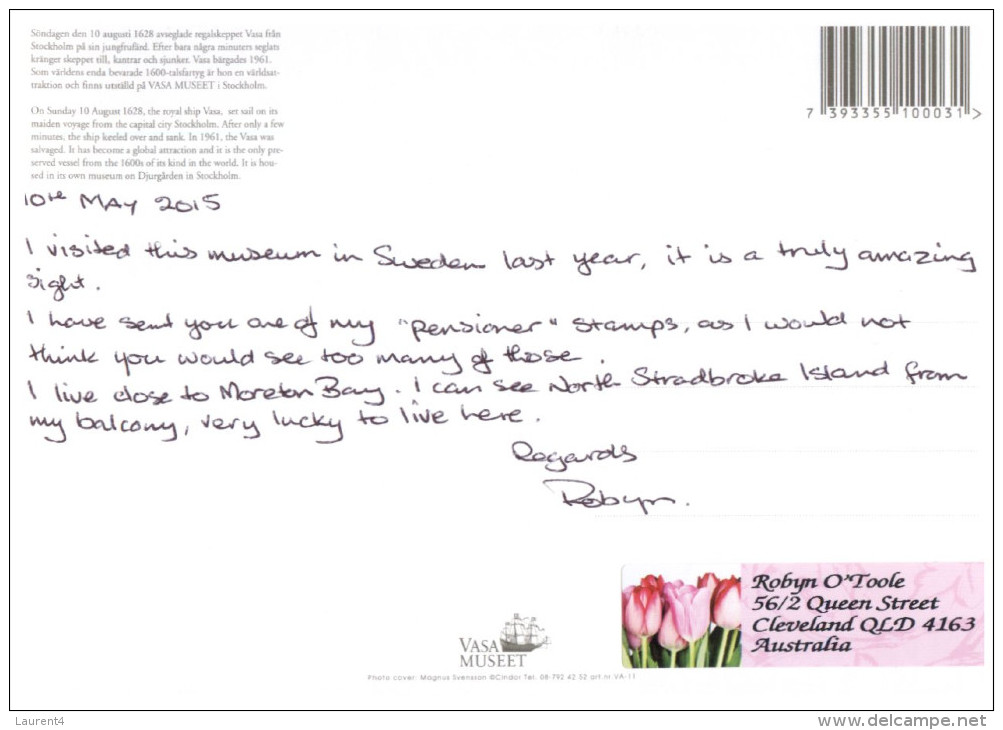 Söndagen den 10 augusti 1628 avseglade regalskeppet Vasa från
Stockholm på sin jungfrufärd. Efter bara några minuters seglats
kränger skeppet till, kantrar och sjunker. Vasa bärgades 1961.
Som världens enda bevarade 1600-talsfartyg är hon en världsat-
traktion och finns utställd på VASA MUSEET i Stockholm.
On Sunday 10 August 1628, the royal ship Vasa, set sail on its
maiden voyage from the capital city Stockholm. After only a few
minutes, the ship keeled over and sank. In 1961, the Vasa was
salvaged. It has become a global attraction and it is the only pre-
served vessel from the 1600s of its kind in the world. It is hou-
sed in its own museum on Djurgården in Stockholm.
7 393355 100031 >
10th MAY 2015
I visited this museum in Sweden last year, it is a truly amazing
sight.
I have sent you one of my "pensioner" stamps, as I would not
think you would see too many of those.
I live close to Moreton Bay. I can see North Stradbroke Island from
my balcony, very lucky to live here.
Regards
Robyn.
Robyn O'Toole
56/2 Queen Street
Cleveland QLD 4163
Australia
VASA
MUSEET
Photo cover: Magnus Svensson ©Cindor Tel. 08-792 42 52 art.nr VA-11
Laurent4
www.delcampe.net